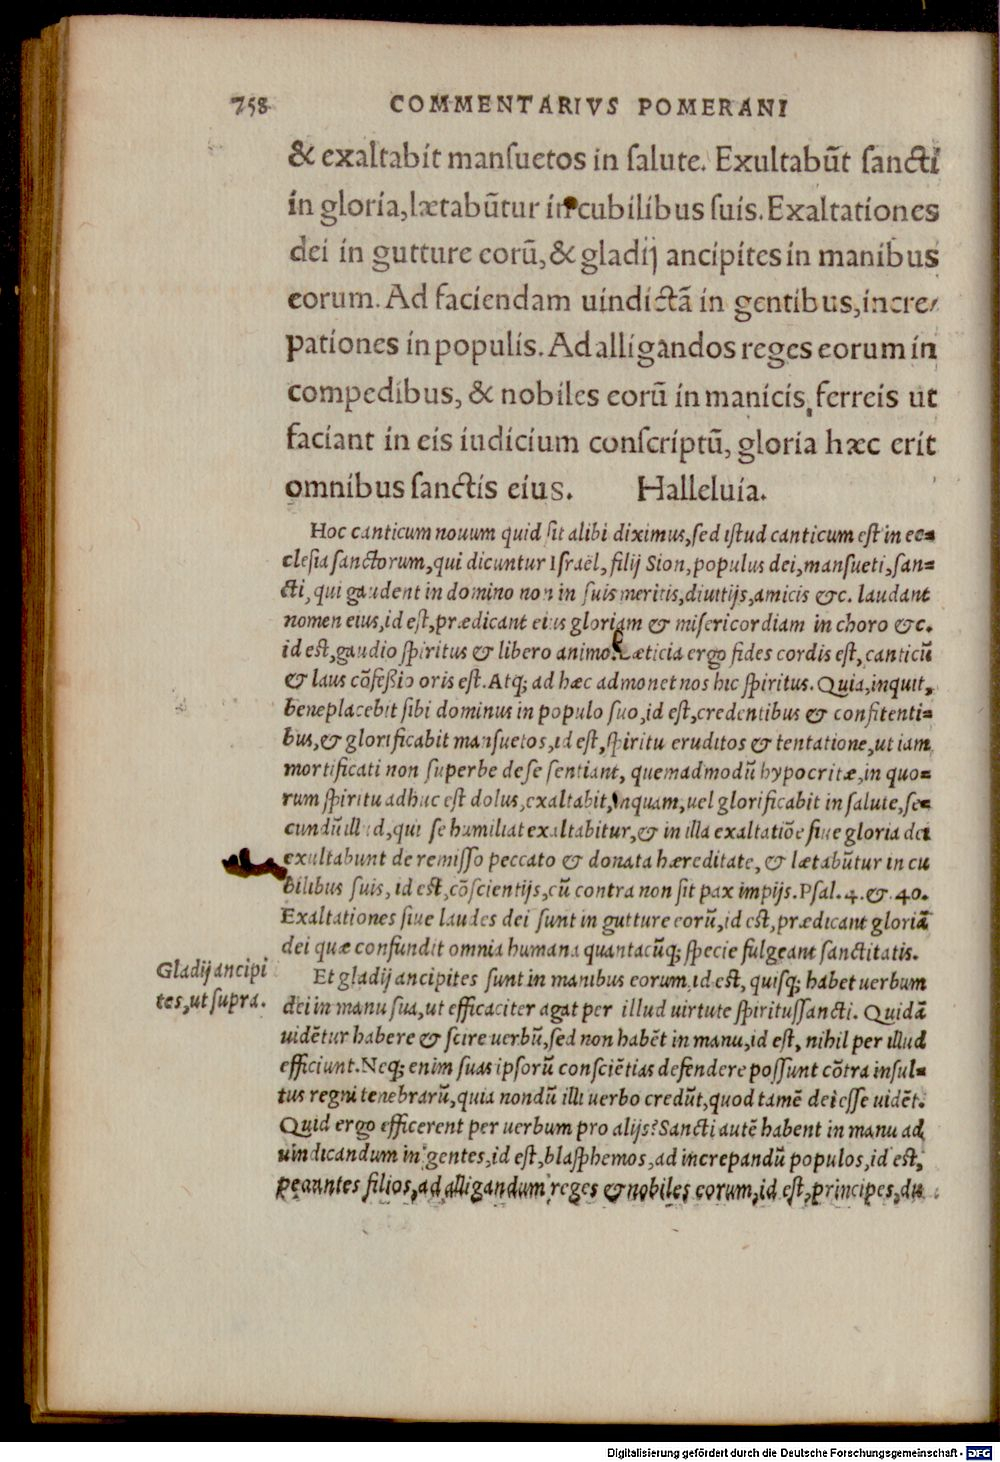 758 COMMENTARIVS POMERANI
& exaltabit mansuetos in salute. Exultabūt sancti
in gloria, lætabūtur in cubilibus suis. Exaltationes
dei in gutture eorū, & gladij ancipites in manibus
eorum. Ad faciendam uindictā in gentibus, incre/
pationes in populis. Ad alligandos reges eorum in
compedibus, & nobiles eorū in manicis ferreis ut
faciant in eis iudicium conscriptū, gloria hæc erit
omnibus sanctis eius. Halleluia.
Hoc canticum nouum quid sit alibi diximus, sed istud canticum est in ec=
clesia sanctorum, qui dicuntur Israël, filij Sion, populus dei, mansueti, san=
cti, qui gaudent in domino non in suis meritis, diuitijs, amicis &c. laudant
nomen eius, id est, prædicant eius gloriam & misericordiam in choro &c.
id est, gaudio spiritus & libero animo. Læticia ergo fides cordis est, canticū
& laus cōfeßio oris est. Atq; ad hæc admonet nos hic spiritus. Quia, inquit,
beneplacebit sibi dominus in populo suo, id est, credentibus & confitenti=
bus, & glorificabit mansuetos, id est, spiritu eruditos & tentatione, ut iam
mortificati non superbe de se sentiant, quemadmodū hypocritæ, in quo=
rum spiritu adhuc est dolus, exaltabit, inquam, uel glorificabit in salute, se=
cundū illud, qui se humiliat exaltabitur, & in illa exaltatiōe siue gloria dei
exultabunt de remisso peccato & donata hæreditate, & lætabūtur in cu
bilibus suis, id est, cōscientijs, cū contra non sit pax impijs. Psal. 4. & .40.
Exaltationes siue laudes dei sunt in gutture eorū, id est, prædicant gloriā
dei quæ confundit omnia humana quantacūq; specie fulgeant sanctitatis.
Gladij ancipi
tes, ut supra.
Et gladij ancipites sunt in manibus eorum, id est, quisq; habet uerbum
dei in manu sua, ut efficaciter agat per illud uirtute spiritussancti. Quidā
uidētur habere & scire uerbū, sed non habēt in manu, id est, nihil per illud
efficiunt. Neq; enim suas ipsorū consciētias defendere possunt cōtra insul=
tus regni tenebrarū, quia nondū illi uerbo credūt, quod tamē dei esse uidēt.
Quid ergo efficerent per uerbum pro alijs? Sancti autē habent in manu ad
uindicandum in gentes, id est, blasphemos, ad increpandū populos, id est,
peauntes filios, ad alligandum reges & nobiles eorum, id est, principes, du
Digitalisierung gefördert durch die Deutsche Forschungsgemeinschaft - DFG